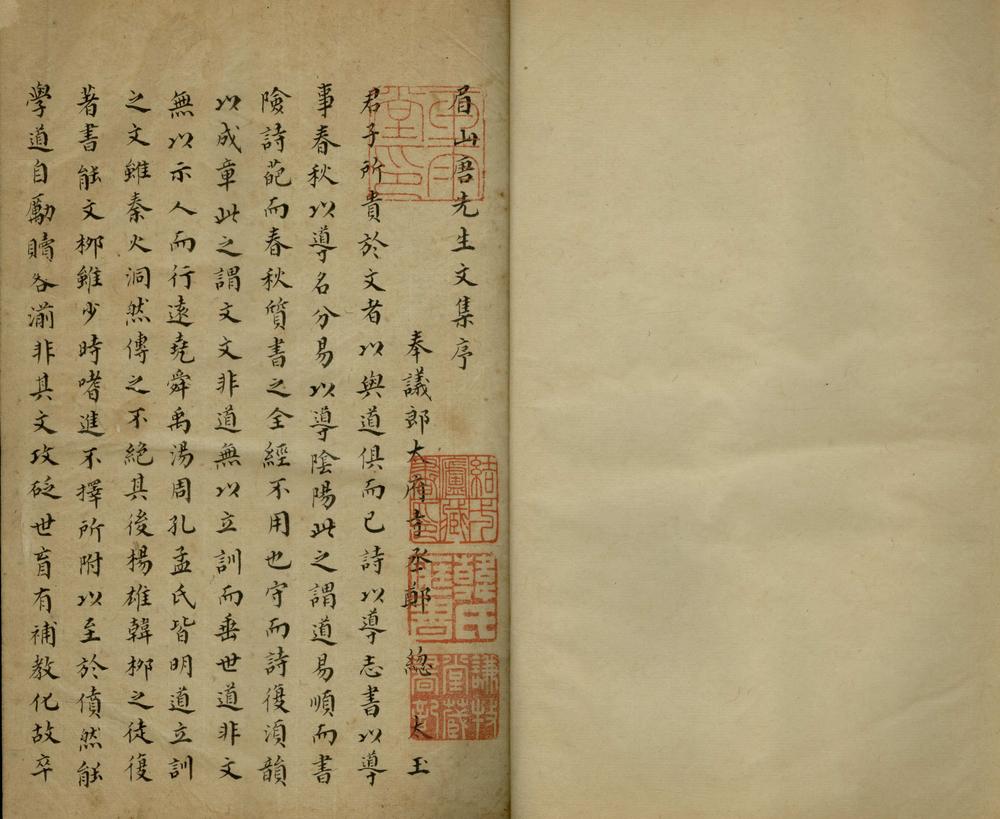 眉山唐先生文集序
奉議郎大府寺丞鄭 總 太玉
君子所貴於文者以與道俱而已詩以導志書以導
事春秋以導名分易以導陰陽此之謂道易順而書
險詩葩而春秋質書之全經不用也守而詩復湏韻
以成章此之謂文文非道無以立訓而垂世道非文
無以示人而行遠堯舜禹湯周孔孟氏皆明道立訓
之文雖秦火洞然傳之不絕其後楊雄韓栁之徒復
著書能文栁雖少時嗜進不擇所附以至於僨然能
學道自勵贖各湔非其文攻砭世盲有補教化故卒
韓氏